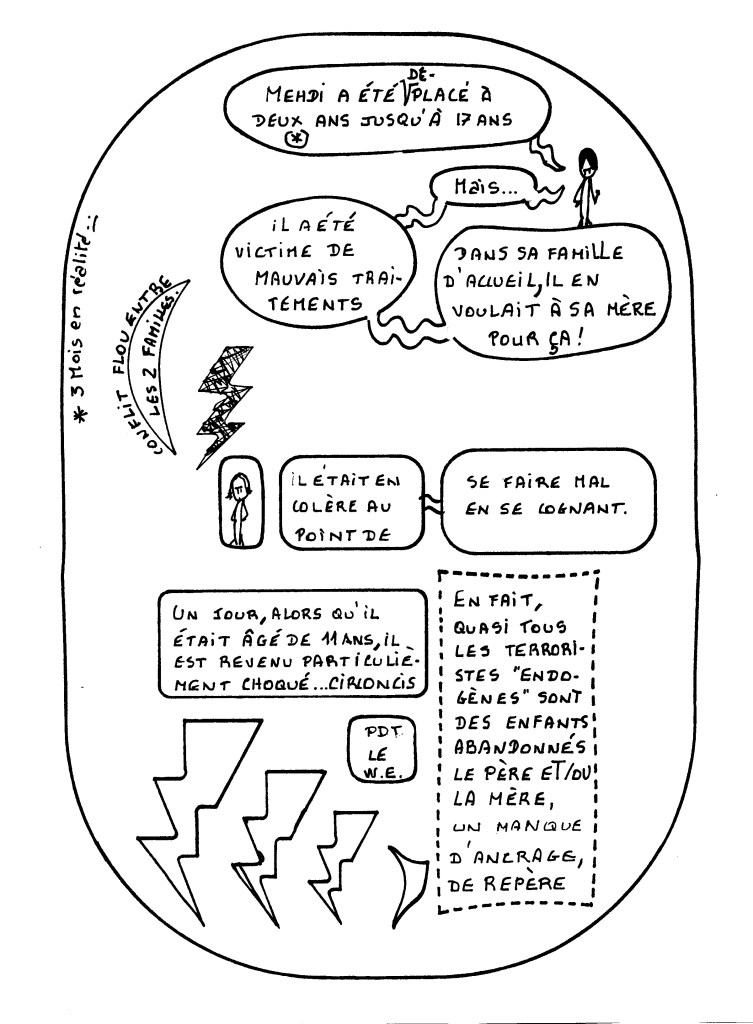 MEHDI A ÉTÉ √PLACÉ À
DÉ-
DEUX ANS JUSQU'À 17 ANS
*
MAIS...
IL A ÉTÉ
VICTIME DE
MAUVAIS TRAI-
TEMENTS
DANS SA FAMILLE
D'ACCUEIL, IL EN
VOULAIT À SA MÈRE
POUR ÇA !
* 3 Mois en réalité :(
CONFLIT FLOU ENTRE
LES 2 FAMILLES.
IL ÉTAIT EN
COLÈRE AU
POINT DE
SE FAIRE MAL
EN SE COGNANT.
UN JOUR, ALORS QU'IL
ÉTAIT ÂGÉ DE 11 ANS, IL
EST REVENU PARTICULIÈ-
MENT CHOQUÉ...CIRCONCIS
PDT
LE
W.E.
EN FAIT,
QUASI TOUS
LES TERRORI-
STES "ENDO-
GÈNES" SONT
DES ENFANTS
ABANDONNÉS
LE PÈRE ET/OU
LA MÈRE,
UN MANQUE
D'ANCRAGE,
DE REPÈRE